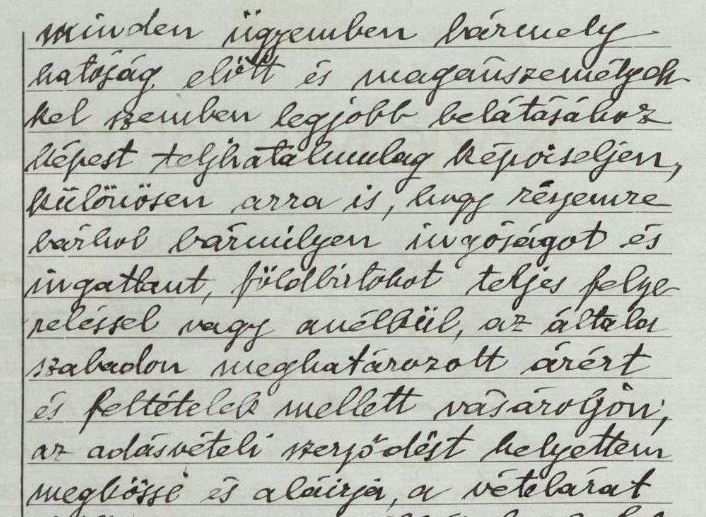 minden ügyemben bármely
hatóság előtt és magánszemélyek-
kel szemben legjobb belátásához
képest teljhatalmulag képviseljen,
különösen arra is, hogy részemre
bárhol bármilyen ingóságot és
ingatlant, földbirtokot teljes felsze-
reléssel vagy anélkül, az általa
szabadon meghatározott árért
és feltételek mellett vásároljon,
az adásvételi szerződést helyettem
megkösse és aláirja, a vételárat